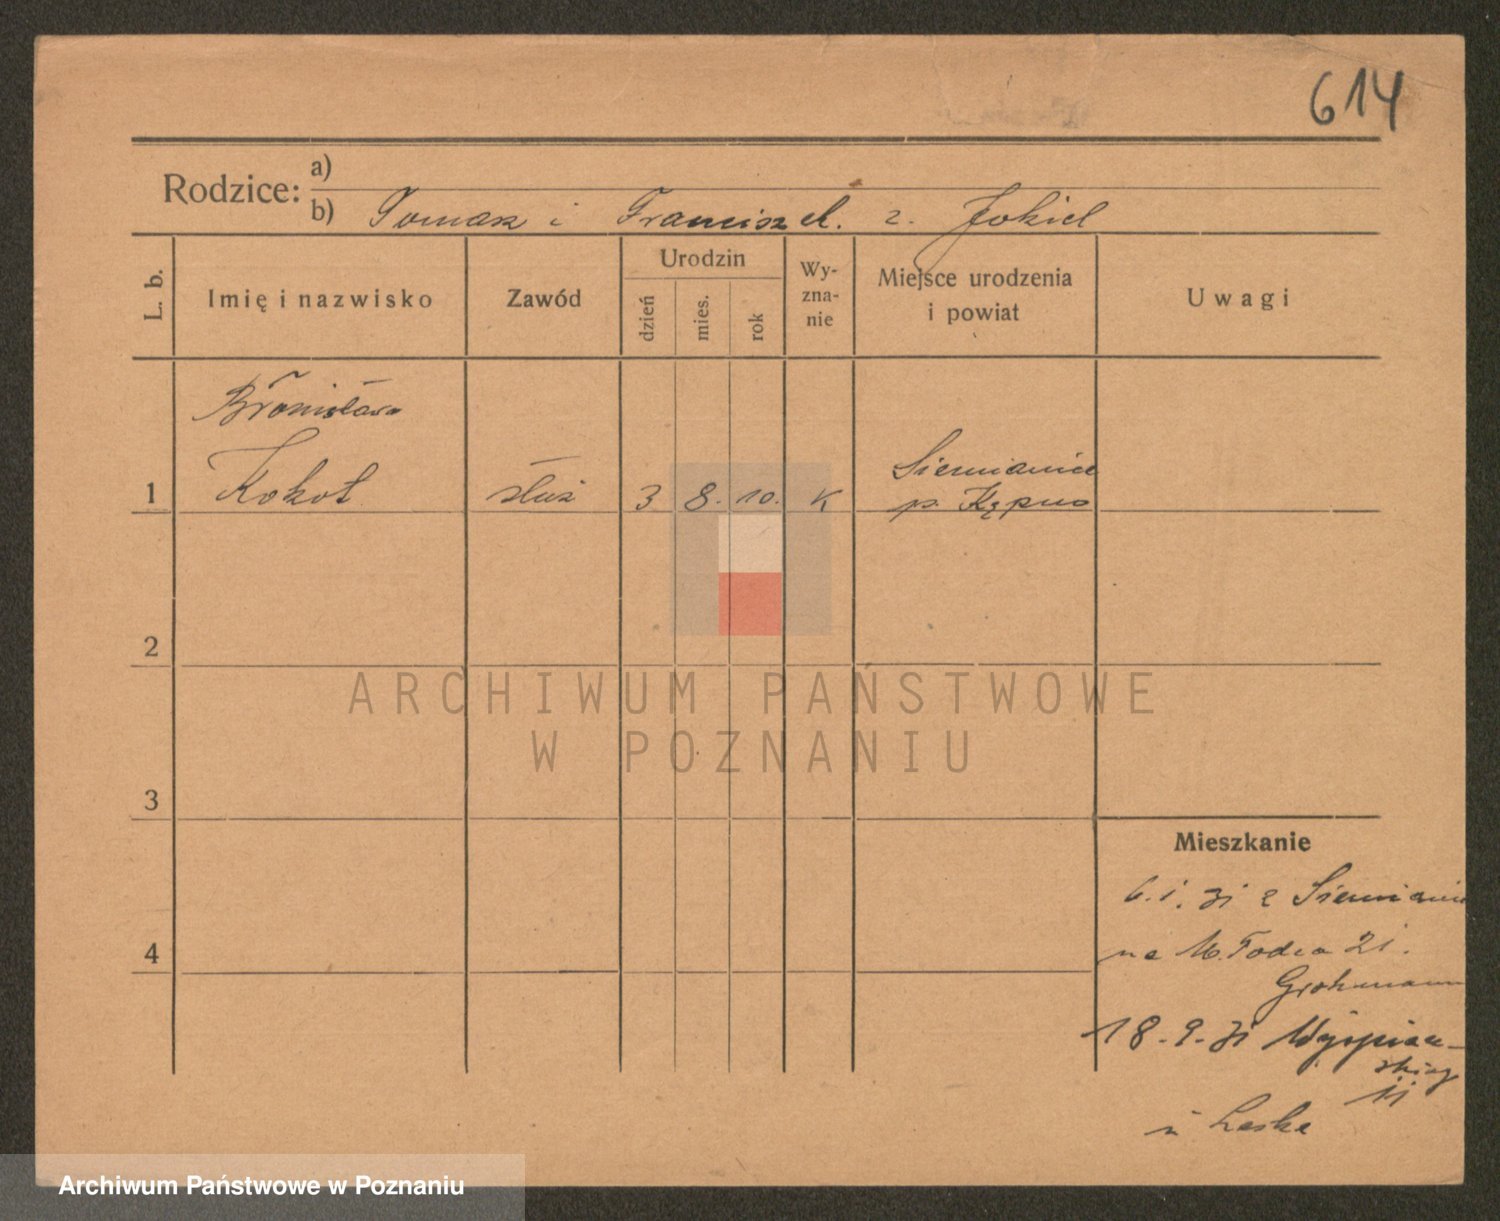 614
Rodzice: a)
b) Tomasz i Franciszek. z. Jokiel
L. b.
Imię i nazwisko
Zawód
Urodzin
dzień
mies.
rok
Wy-
zna-
nie
Miejsce urodzenia
i powiat
Uwagi
Bronisława
1 Kokot służ 3 8. 10. K Siemianice
p. Kępno
2
3
4
ARCHIWUM PAŃSTWOWE
W POZNANIU
Mieszkanie
6.1.31 z Siemianic
na 21.
Grohmann
18.9.31 Wyspiań-
skiego
11
u Leske
Archiwum Państwowe w Poznaniu